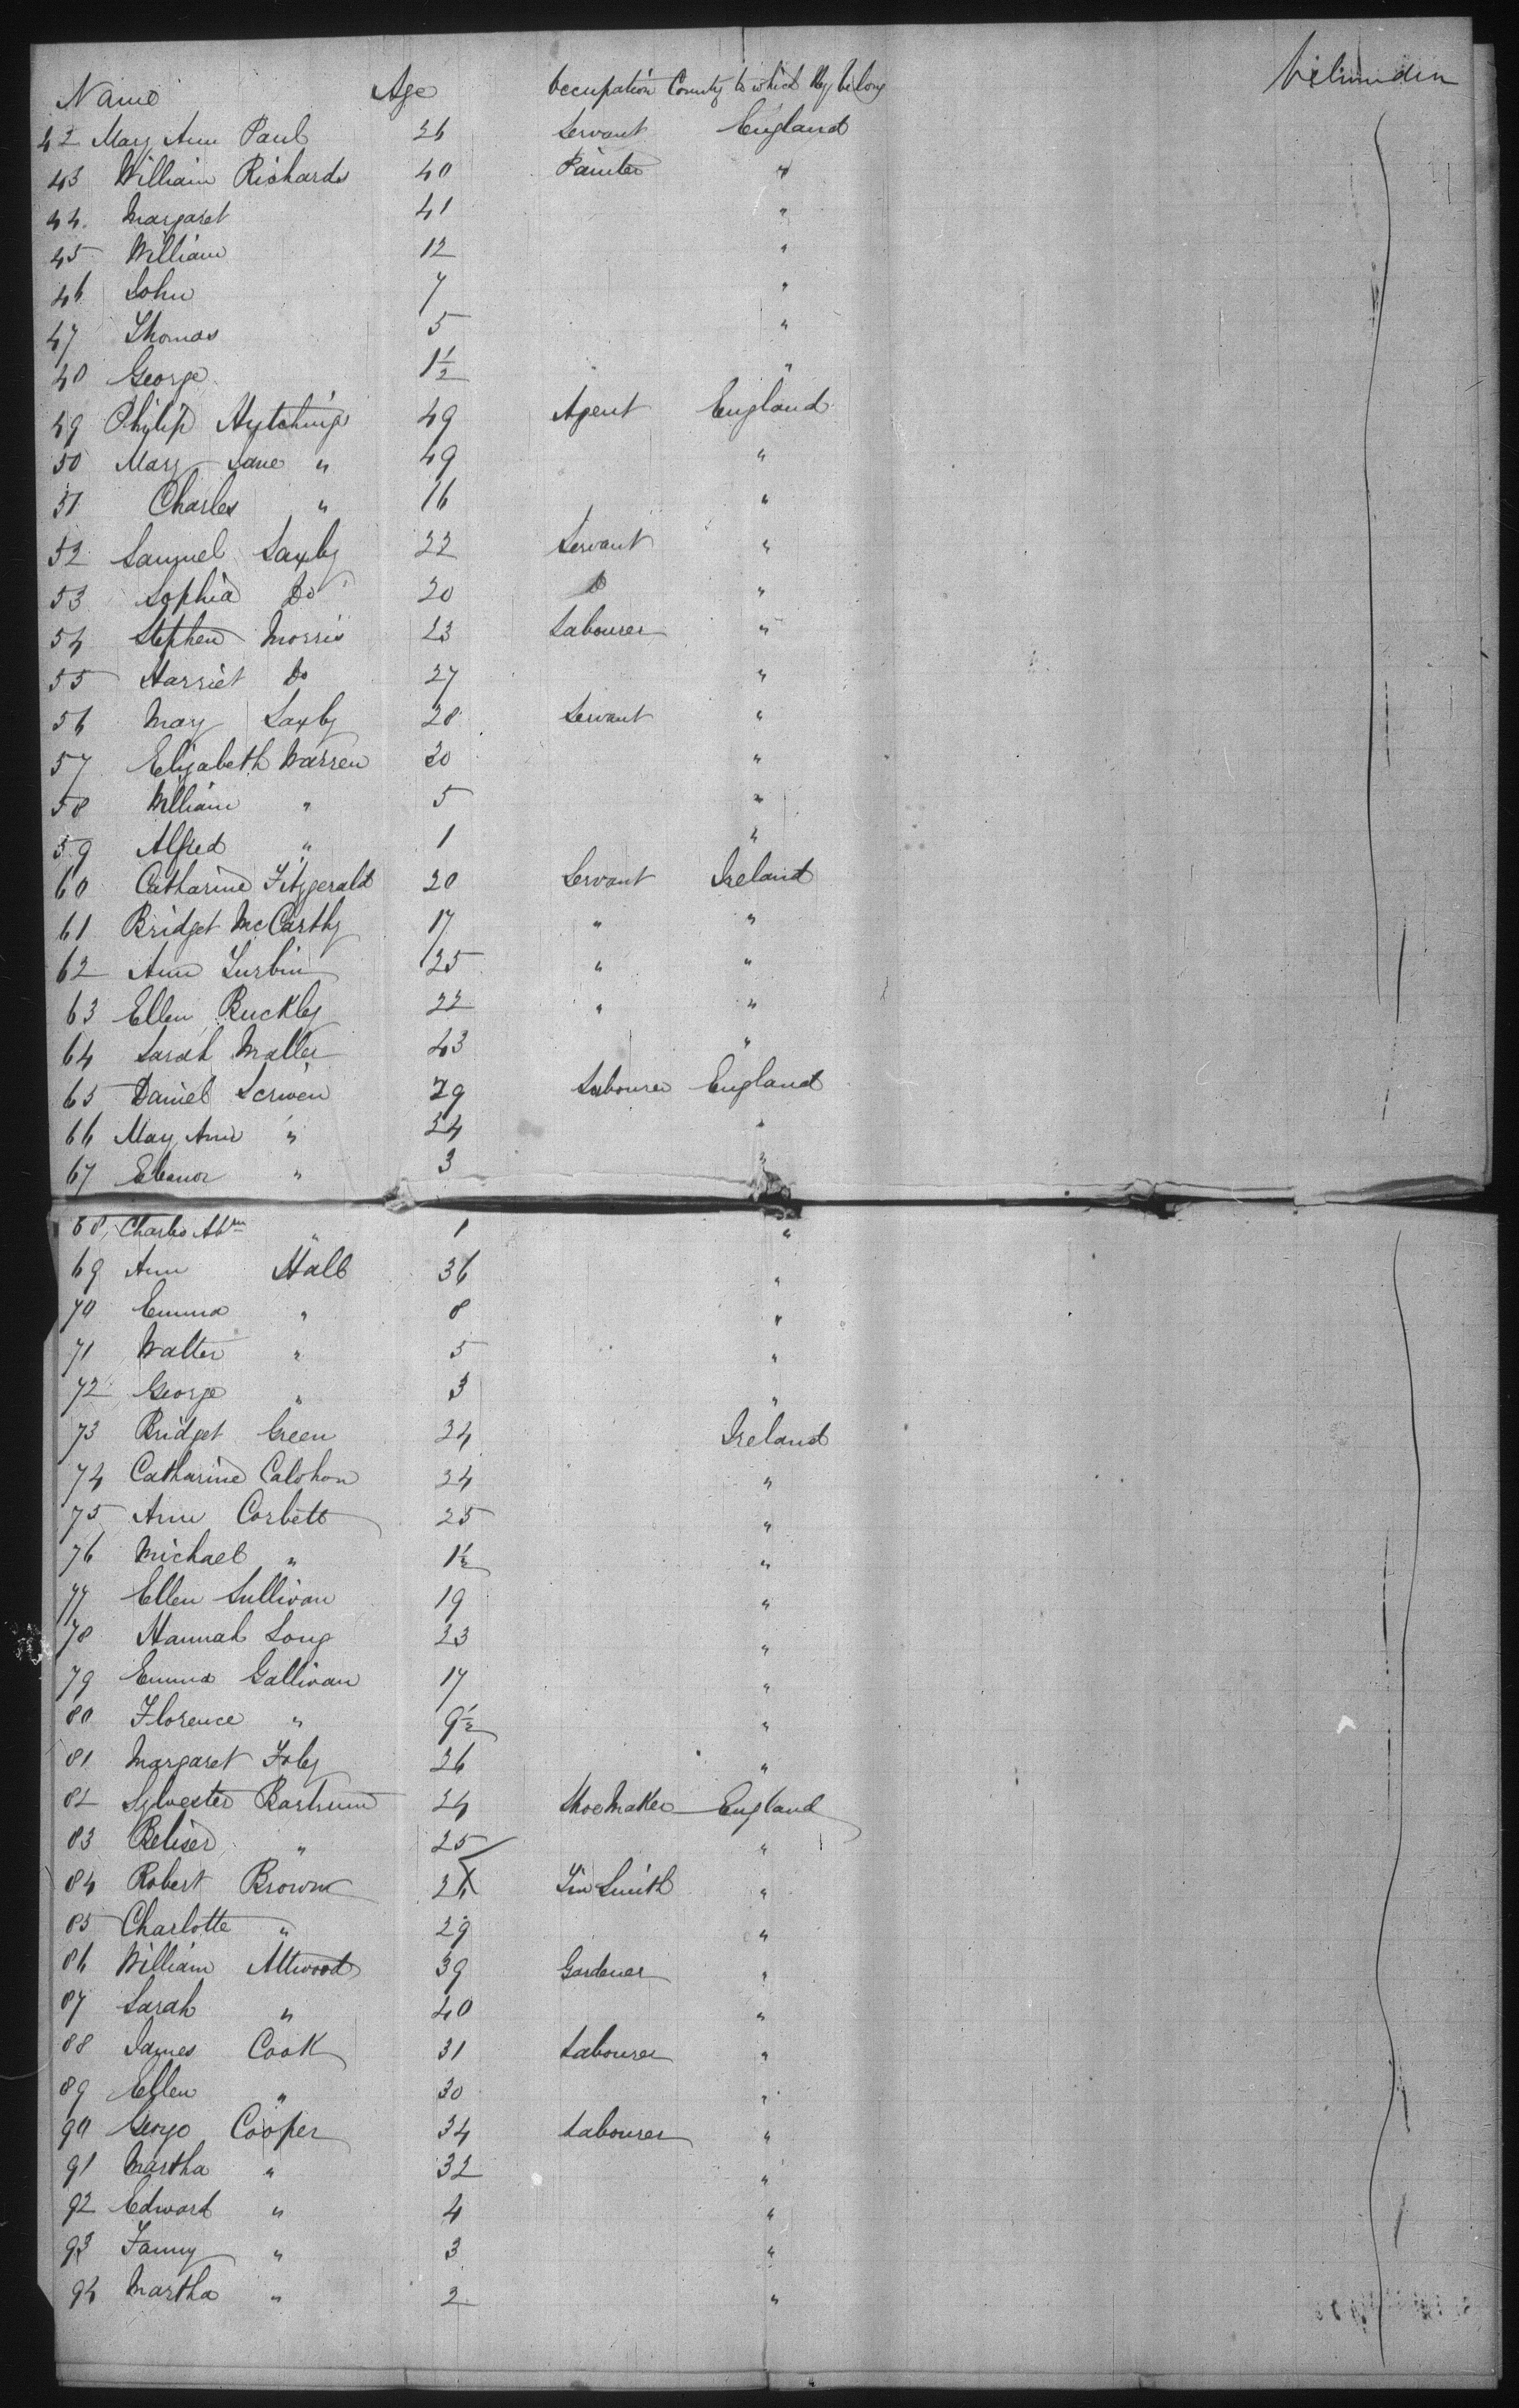 Name Age Occupation County to which they belong
42 Mary Ann Paul 26 Servant England
43 William Richards 40 Painter "
44. Margaret 41 "
45 William 12 "
46 John 7 "
47 Thomas 5 "
48 George 1½ "
49 Philip Hutchings 49 Agent England
50 Mary Jane " 49 "
51 Charles " 16 "
52 Samuel Saxby 22 Servant "
53 Sophia Do 20 Do "
54 Stephen Morris 23 Labourer "
55 Harriet Do 27 "
56 Mary Saxby 28 Servant "
57 Elizabeth Warren 30 "
58 William " 5 "
59 Alfred " 1 "
60 Catharine Fitzgerald 20 Servant Ireland
61 Bridget McCarthy 17 " "
62 Ann 25 " "
63 Ellen Buckley 22 " "
64 Sarah 43 "
65 Daniel 29 Labourer England
66 Mary Ann " 24 "
67 Eleanor " 3 "
68 Charles " 1 "
69 Ann Hall 36 "
70 Emma " 8 "
71 Walter " 5 "
72 George " 3 "
73 Bridget Green 24 Ireland
74 Catharine Calohon 24 "
75 Ann Corbett 25 "
76 Michael " 1½ "
77 Ellen Sullivan 19 "
78 Hannah Long 23 "
79 Emma Gallivan 17 "
80 Florence " 9½ "
81 Margaret Foley 26 "
82 Sylvester Bartrum 24 Shoe Maker England
83 " 25 "
84 Robert Brown Tin Smith "
85 Charlotte " 29 "
86 William Attwood 39 Gardener "
87 Sarah " 40 "
88 James Cook 31 Labourer "
89 Ellen " 30 "
90 George Cooper 34 Labourer "
91 Martha " 32 "
92 Edward " 4 "
93 Fanny " 3 "
94 Martha " 2 "